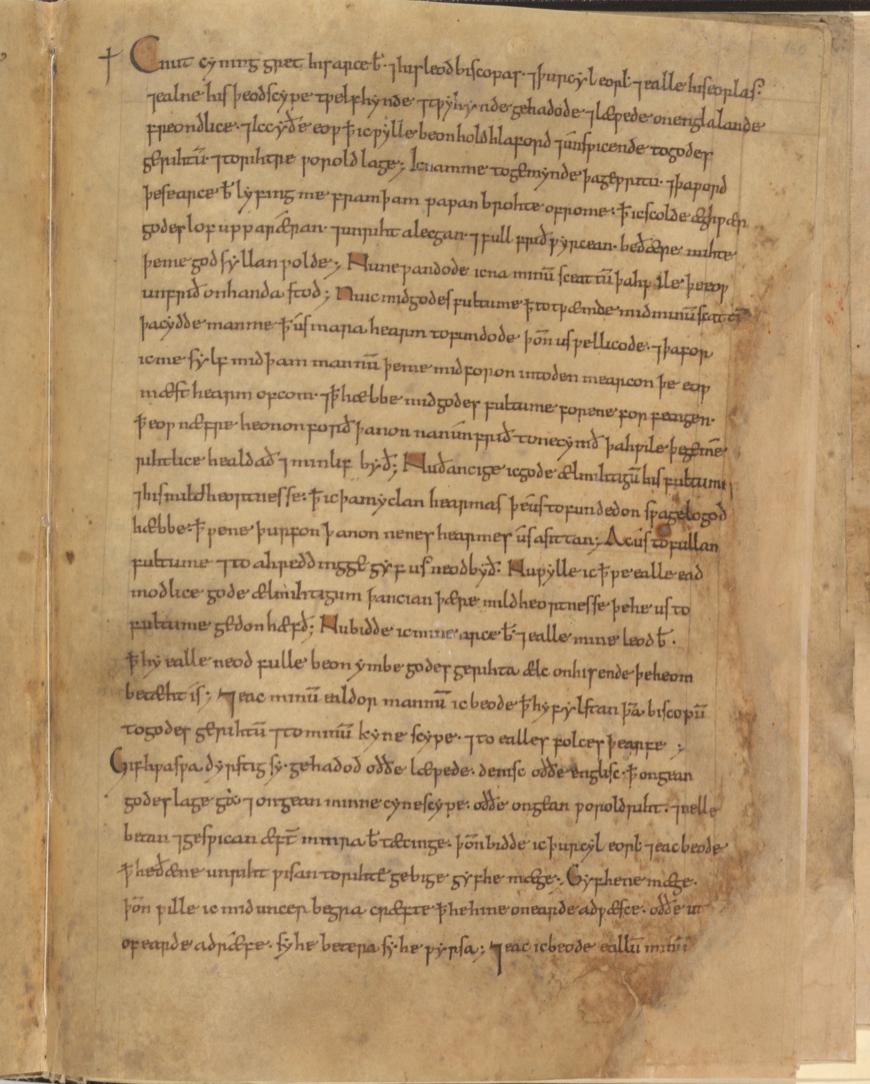 ✝ Cnut cyning gret his arceb̄. ⁊ his leodbiscopas. ⁊ þurcyl eorl. ⁊ ealle his eorlas.
⁊ ealne his þeodscype tƿelfhynde ⁊ tƿyhynde gehadode ⁊ læƿede on englalande
freondlice. ⁊ ic cyðe eoƿ ꝥ ic ƿylle beon hold hlaford ⁊ unsƿicende to godes
gerihtū. ⁊ to rihtre ƿorold lage; Ic nam me to gemynde þa geƿritu. ⁊ þa ƿord
þe se arceb̄ lyfing me fram þam papan brohte of rome. ꝥ ic scolde æghƿær
godes lof upp aræran. ⁊ unriht alecgan. ⁊ full frið ƿyrcean. be ðære mihte
þe me god syllan ƿolde; Nu ne ƿandode ic na minū sceattū þa hƿile þe eoƿ
unfrið on handa stod; Nu ic mid godes fultume ꝥ totƿæmde mid minū scattū
þa cydde man me ꝥ us mara hearm to fundode. þoñ us ƿel licode. ⁊ þa for
ic me sylf mid þam mannū þe me mid foron into denmearcon þe eoƿ
mæst hearm of com. ⁊ ꝥ hæbbe mid godes fultume forene forfangen.
ꝥ eoƿ næfre heonon forð þanon nan unfrið to ne cymð þa hƿile þe ge me
rihtlice healdað ⁊ min lif byð; Nu ðancige ic gode ælmihtigū his fultumes
⁊ his mildheortnesse. ꝥ ic þa myclan hearmas þe us to fundedon sƿa gelogod
hæbbe. ꝥ ƿe ne þurfon þanon nenes hearmes us asittan; Ac us to fullan
fultume ⁊ to ahreddingge gyf us neod byð; Nu ƿylle ic ꝥ ƿe ealle ead
modlice gode ælmihtigum þancian þære mildheortnesse þe he us to
fultume gedon hæfð; Nu bidde ic mine arceb̄ ⁊ ealle mine leodb̄.
ꝥ hy ealle neodfulle beon ymbe godes gerihta ælc on his ende þe heom
betæht is; ⁊ eac minū ealdormannū ic beode ꝥ hy fylstan þā biscopū
to godes gerihtū ⁊ to minū kynescype. ⁊ to ealles folces þearfe;
Gif hƿa sƿa dyrstig sy. gehadod oððe læƿede. denisc oððe englisc. ꝥ ongean
godes lage ga ⁊ ongean minne cynescype. oððe ongean ƿoroldriht. ⁊ nelle
betan ⁊ gesƿican æft̄ minra b̄ tæcinge. þoñ bidde ic þurcyl eorl ⁊ eac beode
ꝥ he ðæne unrihtƿisan to rihte gebige gyf he mæge. Gyf he ne mæge.
þoñ ƿille ic mid uncer begra cræfte ꝥ he hine on earde adƿæsce. oððe ut
of earde adræfe. sy he betera sy he ƿyrsa; ⁊ eac ic beode eallū minū